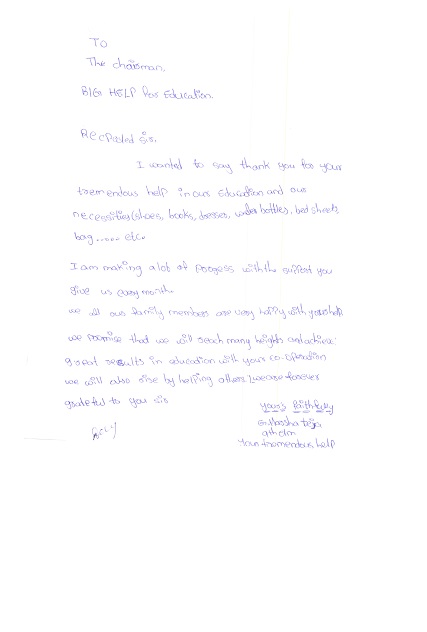 To
The chairman,
BIG HELP for Education.
Recpected sir,
I wanted to say thank you for your
tremendous help in our Education and our
necessities (shoes, books, dresses, water bottles, bed sheets
bag...... etc.
I am making a lot of progess with the support you
give us every month.
we all our family members are very happy with your help
we promise that we will reach many heights and achive
great results in education with your co-operation
we will also rise by helping others. we are forever
grateful to you sir
your's faithfully
G. Harsha teja
9th clm
Your tremendous help